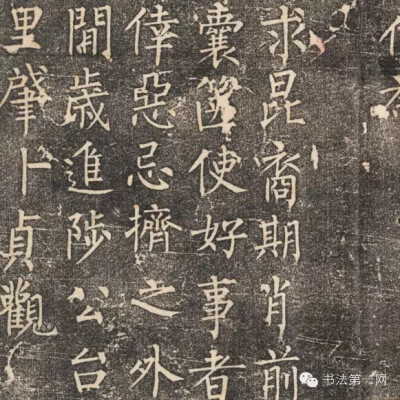 求昆裔期肖前
囊篋使好事者
倖惡忌擠之外
閒歲進陟公台
里肇卜貞觀
书法第一网